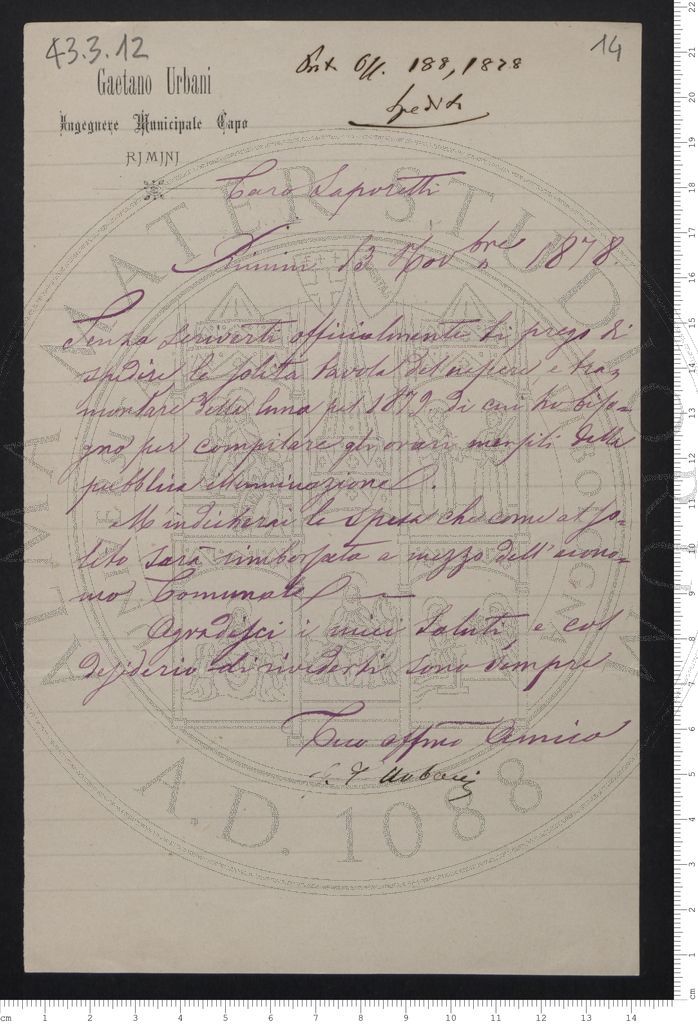 43.3.12
14
Gaetano Urbani
Ingegnere Municipale Capo
RIMINI
Off. 188, 1878
Spedito
Caro Saporetti
Rimini 13 Novbre 1878.
Senza scriverti officialmente ti prego di
spedire la solita tavola del nascere e tra-
montare della luna pel 1879. di cui ho biso-
gno per compilare gli orari mensili della
pubblica illuminazione.
M'indicherai la spesa che come al so-
lito sarà rimborsata a mezzo dell'econo-
mo Comunale
Agradisci i miei saluti e col
desiderio di rivederti sono sempre
Tuo affmo Amico
Urbani
ALMA MATER STUDIORUM
A.D. 1088
cm 1 2 3 4 5 6 7 8 9 10 11 12 13 14
cm 1 2 3 4 5 6 7 8 9 10 11 12 13 14 15 16 17 18 19 20 21 22